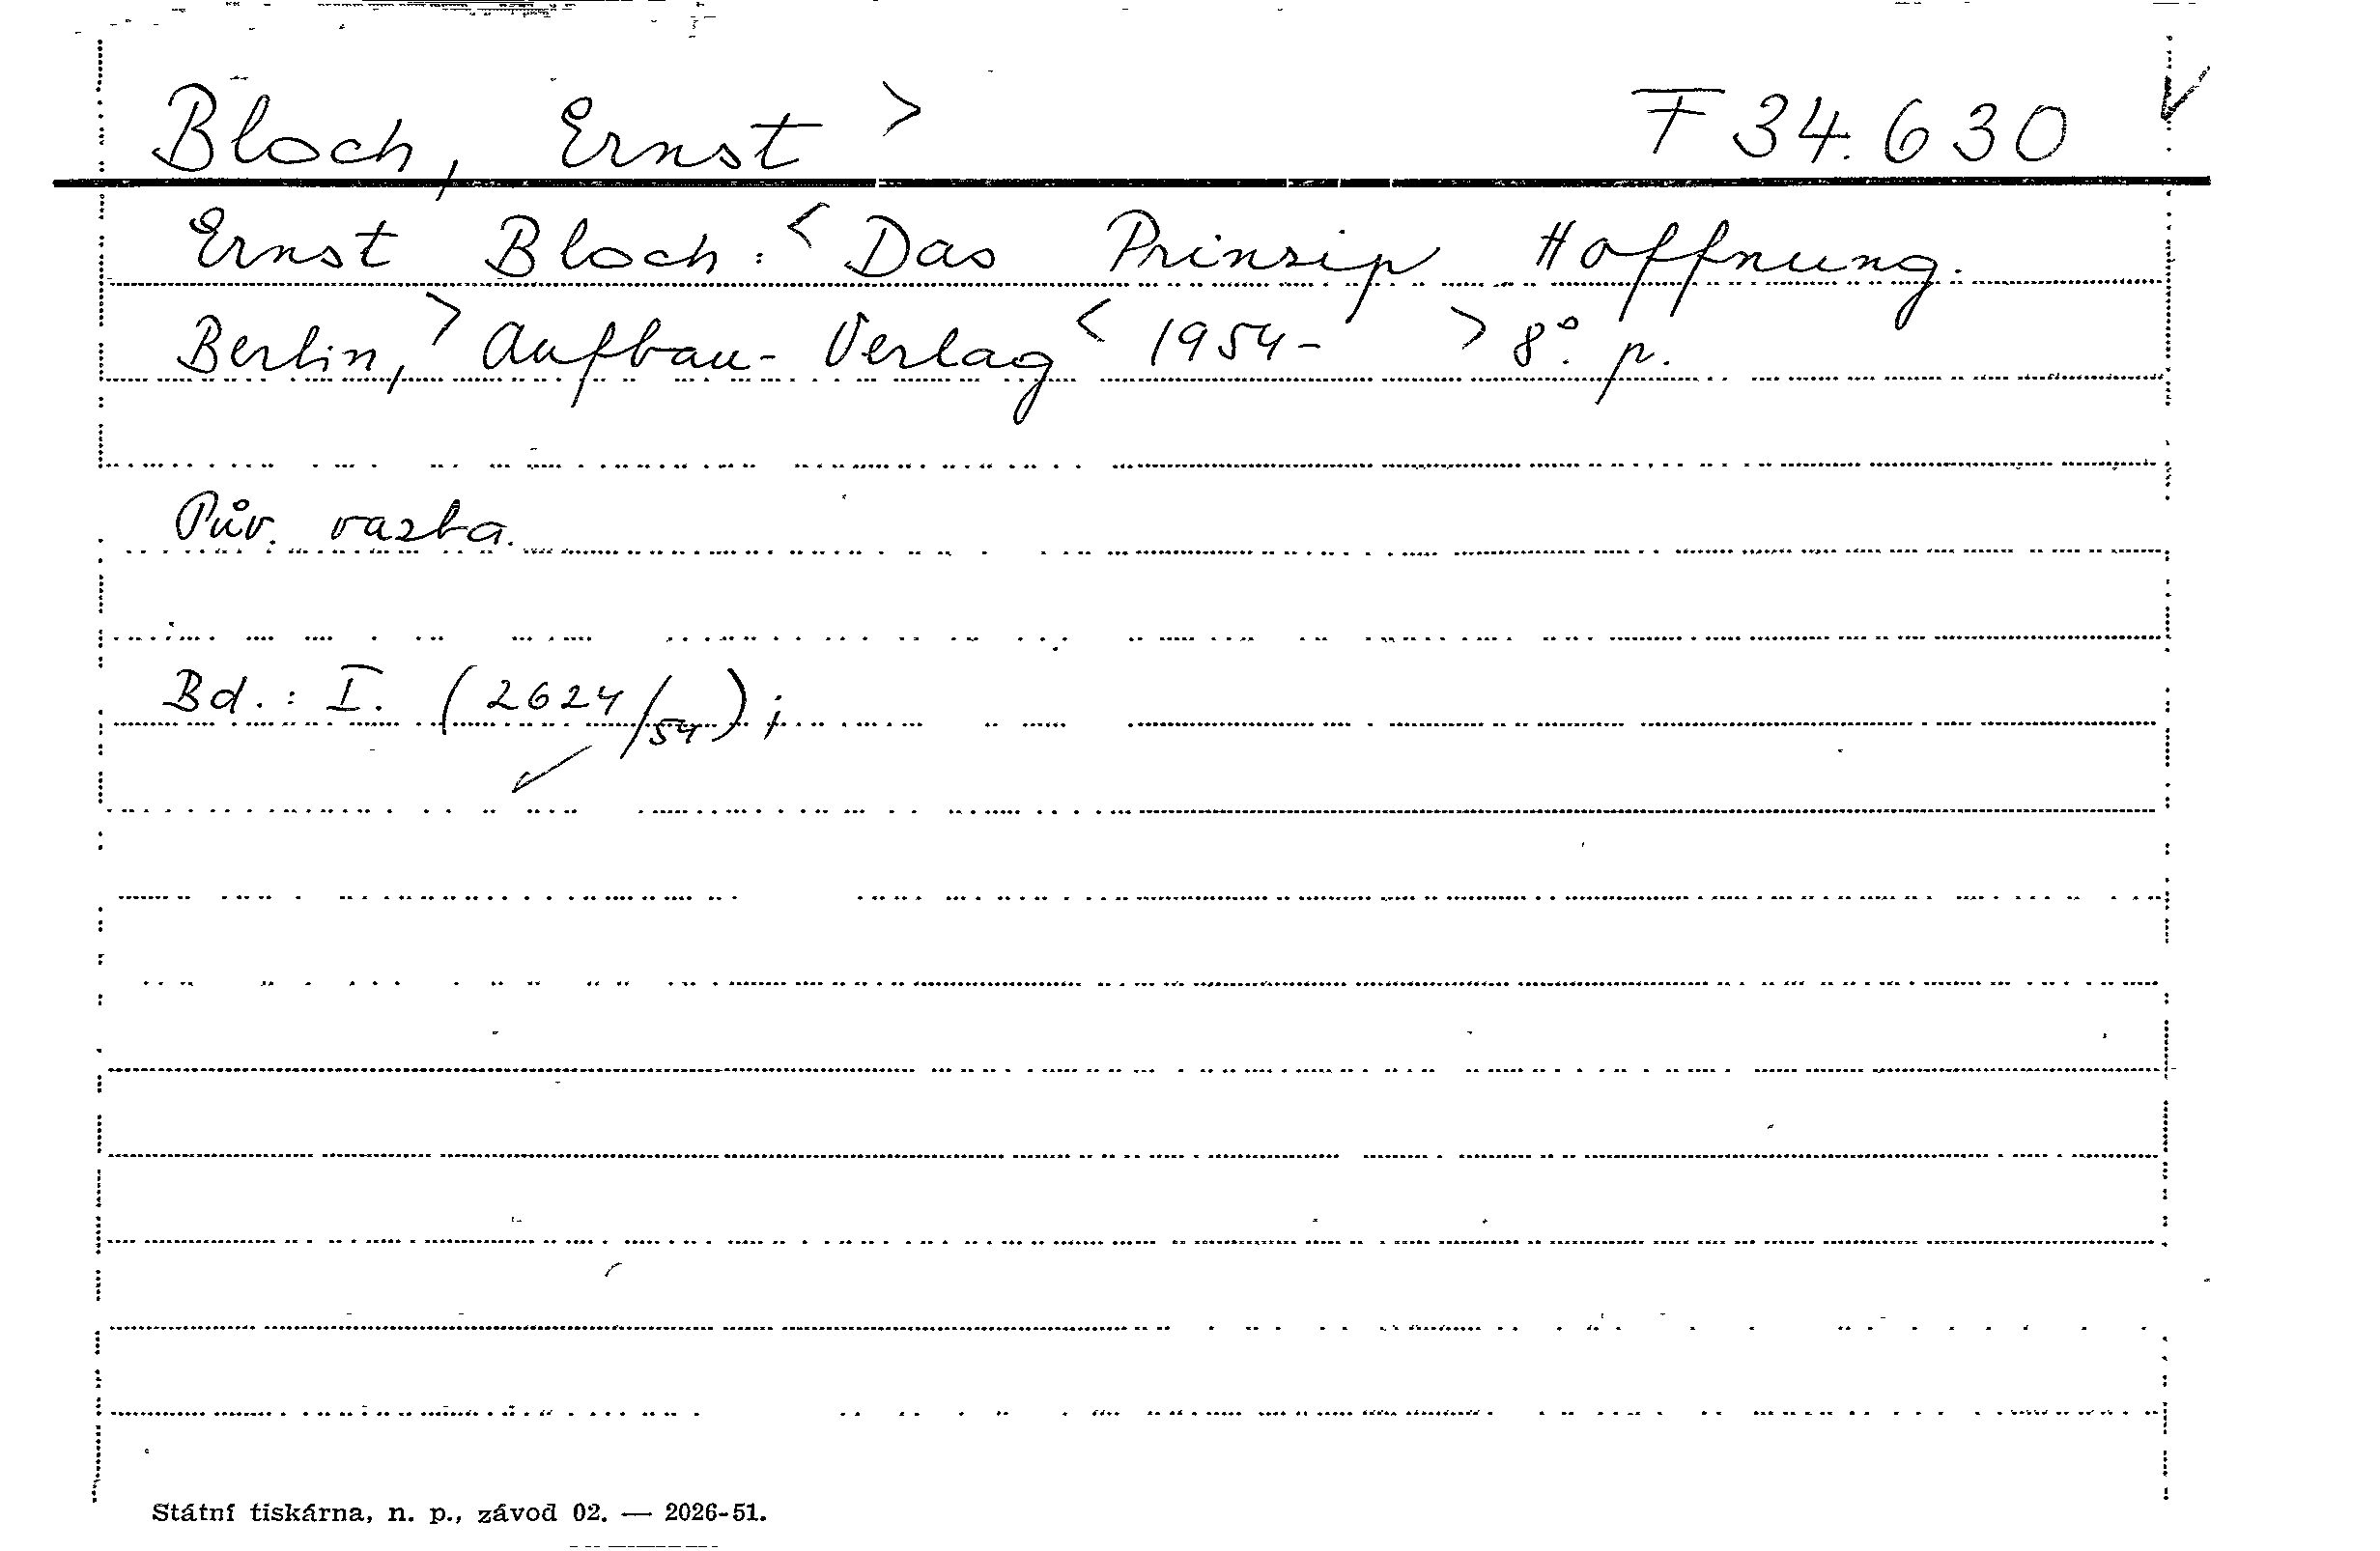 Bloch, Ernst > F 34.630
Ernst Bloch: < Das Prinzip Hoffnung.
Berlin, > Aufbau-Verlag < 1954- > 8°. p.
Pův. vazba.
Bd.: I. (2624/54);
Státní tiskárna, n. p., závod 02. — 2026-51.